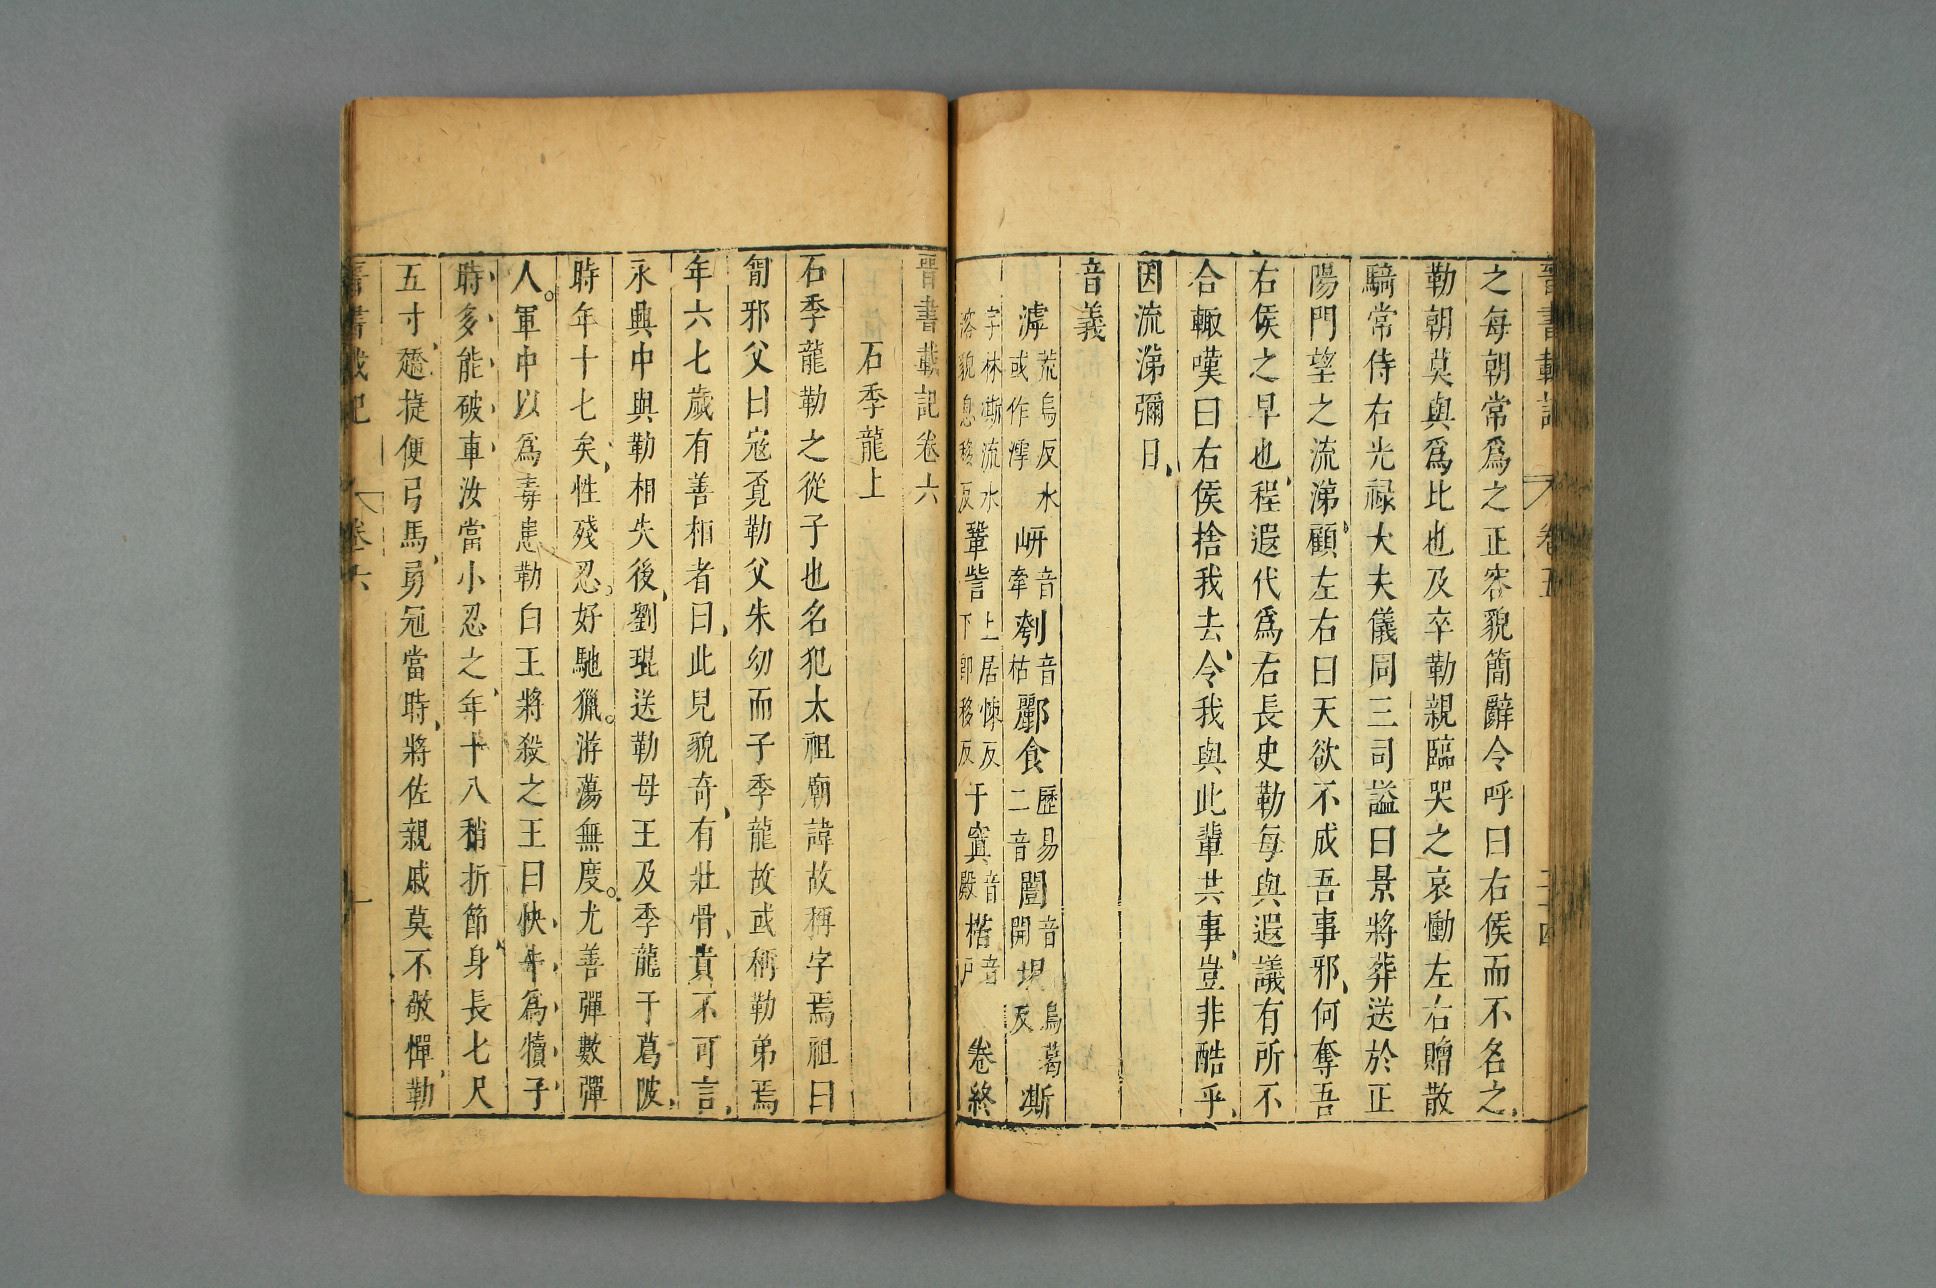 晉書載記 卷五 二十四
之每朝常爲之正容貌簡辭令呼曰右侯而不名之
勒朝莫與爲比也及卒勒親臨哭之哀慟左右贈散
騎常侍右光祿大夫儀同三司謚曰景將葬送於正
陽門望之流涕顧左右曰天欲不成吾事邪何奪吾
右侯之早也程遐代爲右長史勒每與遐議有所不
合輙嘆曰右侯捨我去令我與此輩共事豈非酷乎
因流涕彌日
音義
滹荒烏反水或作滹岍音牽刳音枯酈食歷易二音闓音開堨烏葛反澌
字林澌流水溶貌息移反鞏訾上居悚反下卽移反于窴音殿楛音戶 卷終
晉書載記卷六
石季龍上
石季龍勒之從子也名犯太祖廟諱故稱字焉祖曰
㔯邪父曰寇覓勒父朱幼而子季龍故或稱勒弟焉
年六七歲有善相者曰此兒貌奇有壯骨貴不可言
永興中與勒相失後劉琨送勒母王及季龍于葛陂
時年十七矣性殘忍好馳獵游蕩無度尤善彈數彈
人軍中以爲毒患勒白王將殺之王曰快牛爲犢子
時多能破車汝當小忍之年十八稍折節身長七尺
五寸趫捷便弓馬勇冠當時將佐親戚莫不敬憚勒
晉書載記 卷六 一